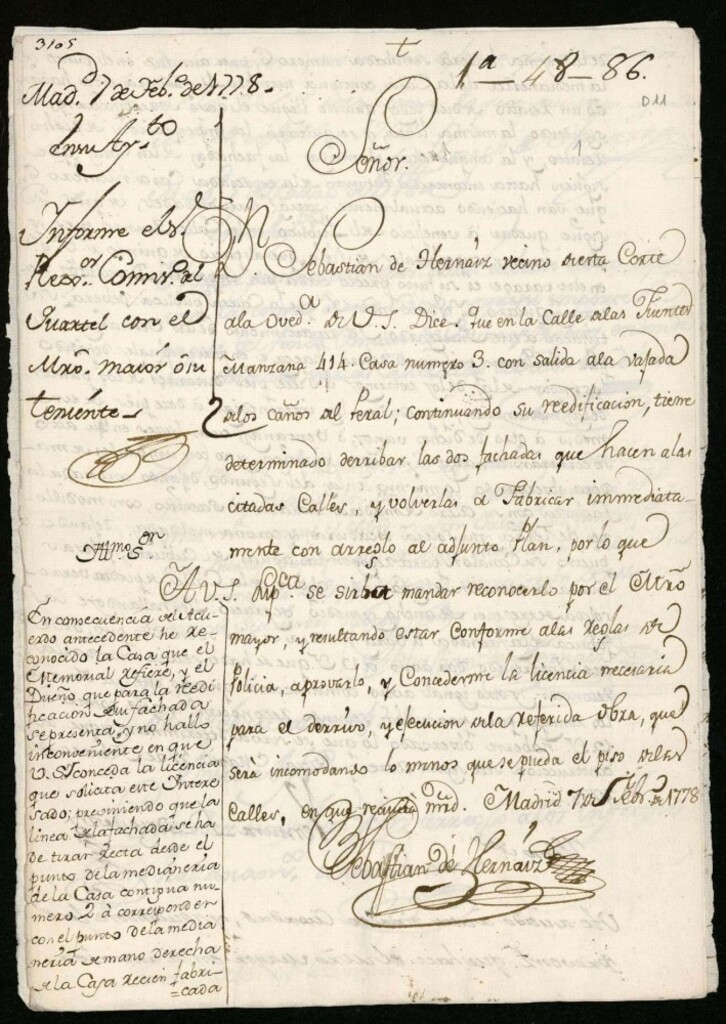 3105
†
1ª 48-86.
D11
Mad.d 7 de Feb.o de 1778.
En su Ay.to
Señor.
Informe el S.r
Rexo.or Comis.o al
Quartel con el
Mro. maior ó su
teniente
D.n Sebastian de Hernaiz vecino de esta Corte
ala Oved.a de V.S. Dice. Que en la Calle de las Fuentes
Manzana 414. Casa numero 3. con salida ala vajada
de los caños del Peral; continuando su reedificacion, tiene
determinado derribar las dos fachadas que hacen alas
citadas Calles, y volverlas a Fabricar immediata-
mente con arreglo al adjunto Plan, por lo que
AV.S. Sup.ca se sirba mandar reconocerlo por el Mro
mayor, y resultando estar Conforme alas Reglas de
Policia, aprovarlo, y Concederme la licencia necesaria
para el derrivo, y ejecucion dela referida obra, que
será incomodando lo menos que se pueda el piso delas
Calles, en que recivirá mrd. Madrid 7 de Feb.o de 1778
Sebastian de Hernaiz
Ill.mo S.or
En consecuencia del Acu-
erdo antecedente he re-
conocido la Casa que el
Memorial refiere, y el
Diseño que para la reedi-
ficacion de su fachada
se presenta, y no hallo
inconveniente en que
V.S. conceda la licencia
que solicita este Intere-
sado; previniendo que la
linea de la fachada se ha
de tirar recta desde el
punto de la medianeria
de la Casa contigua nu-
mero 2 à corresponder
con el punto de la media
neria de mano derecha
de la Casa recien fabri-
=cada